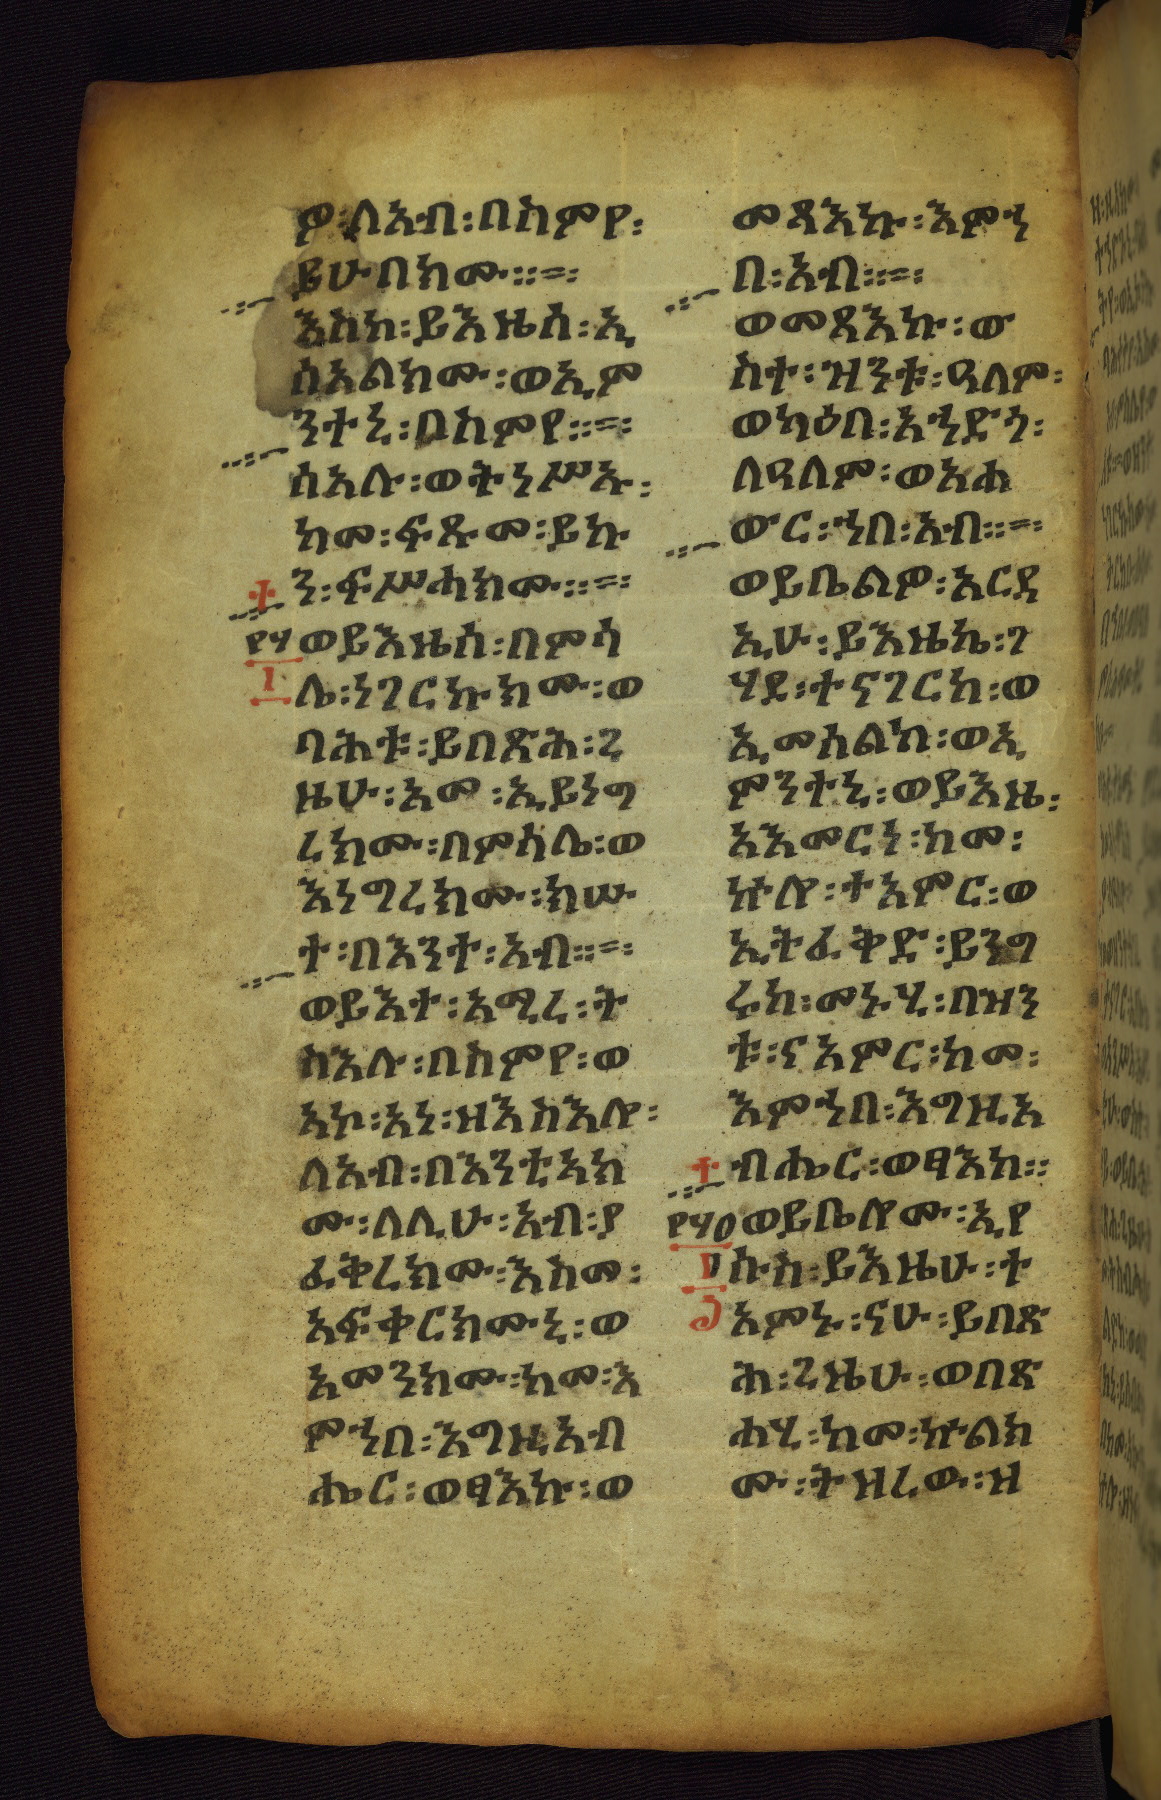 ዎ፡ለአብ፡በስምየ፡
ይሁብክሙ።=፡
እስከ፡ይእዜሰ፡ኢ
ሰአልክሙ፡ወኢም
ንተኒ፡በስምየ።=፡
ሰአሉ፡ወትነሥኡ፡
ከመ፡ፍጹመ፡ይኩ
ን፡ፍሥሓክሙ።=፡
ወይእዜሰ፡በምሳ
ሌ፡ነገርኩክሙ፡ወ
ባሕቱ፡ይበጽሕ፡ጊ
ዜሁ፡አመ፡ኢይነግ
ረክሙ፡በምሳሌ፡ወ
እነግረክሙ፡ክሡ
ተ፡በእንተ፡አብ።=፡
ወይእተ፡አሚረ፡ት
ስእሉ፡በስምየ፡ወ
አኮ፡አነ፡ዘእስእሎ፡
ለአብ፡በእንቲአክ
ሙ፡ለሊሁ፡አብ፡ያ
ፈቅረክሙ፡እስመ፡
አፍቀርክሙኒ፡ወ
አመንክሙ፡ከመ፡እ
ምኀበ፡እግዚአብ
ሔር፡ወፃእኩ፡ወ
መጻእኩ፡እምኀ
በ፡አብ።=፡
ወመጻእኩ፡ው
ስተ፡ዝንቱ፡ዓለም፡
ወካዕበ፡አኀድጎ፡
ለዓለም፡ወአሐ
ውር፡ኀበ፡አብ።=፡
ወይቤልዎ፡አርዳ
ኢሁ፡ይእዜኬ፡ገ
ሃደ፡ተናገርከ፡ወ
ኢመሰልከ፡ወኢ
ምንተኒ፡ወይእዜ፡
አእመርነ፡ከመ፡
ኵሎ፡ተአምር፡ወ
ኢትፈቅድ፡ይንግ
ሩከ፡መኑሂ፡በዝን
ቱ፡ናአምር፡ከመ፡
እምኀበ፡እግዚአ
ብሔር፡ወፃእከ።
ወይቤሎሙ፡ኢየ
ሱስ፡ይእዜሁ፡ተ
አምኑ፡ናሁ፡ይበጽ
ሕ፡ጊዜሁ፡ወበጽ
ሐሂ፡ከመ፡ኵልክ
ሙ፡ትዘረው፡ዘ